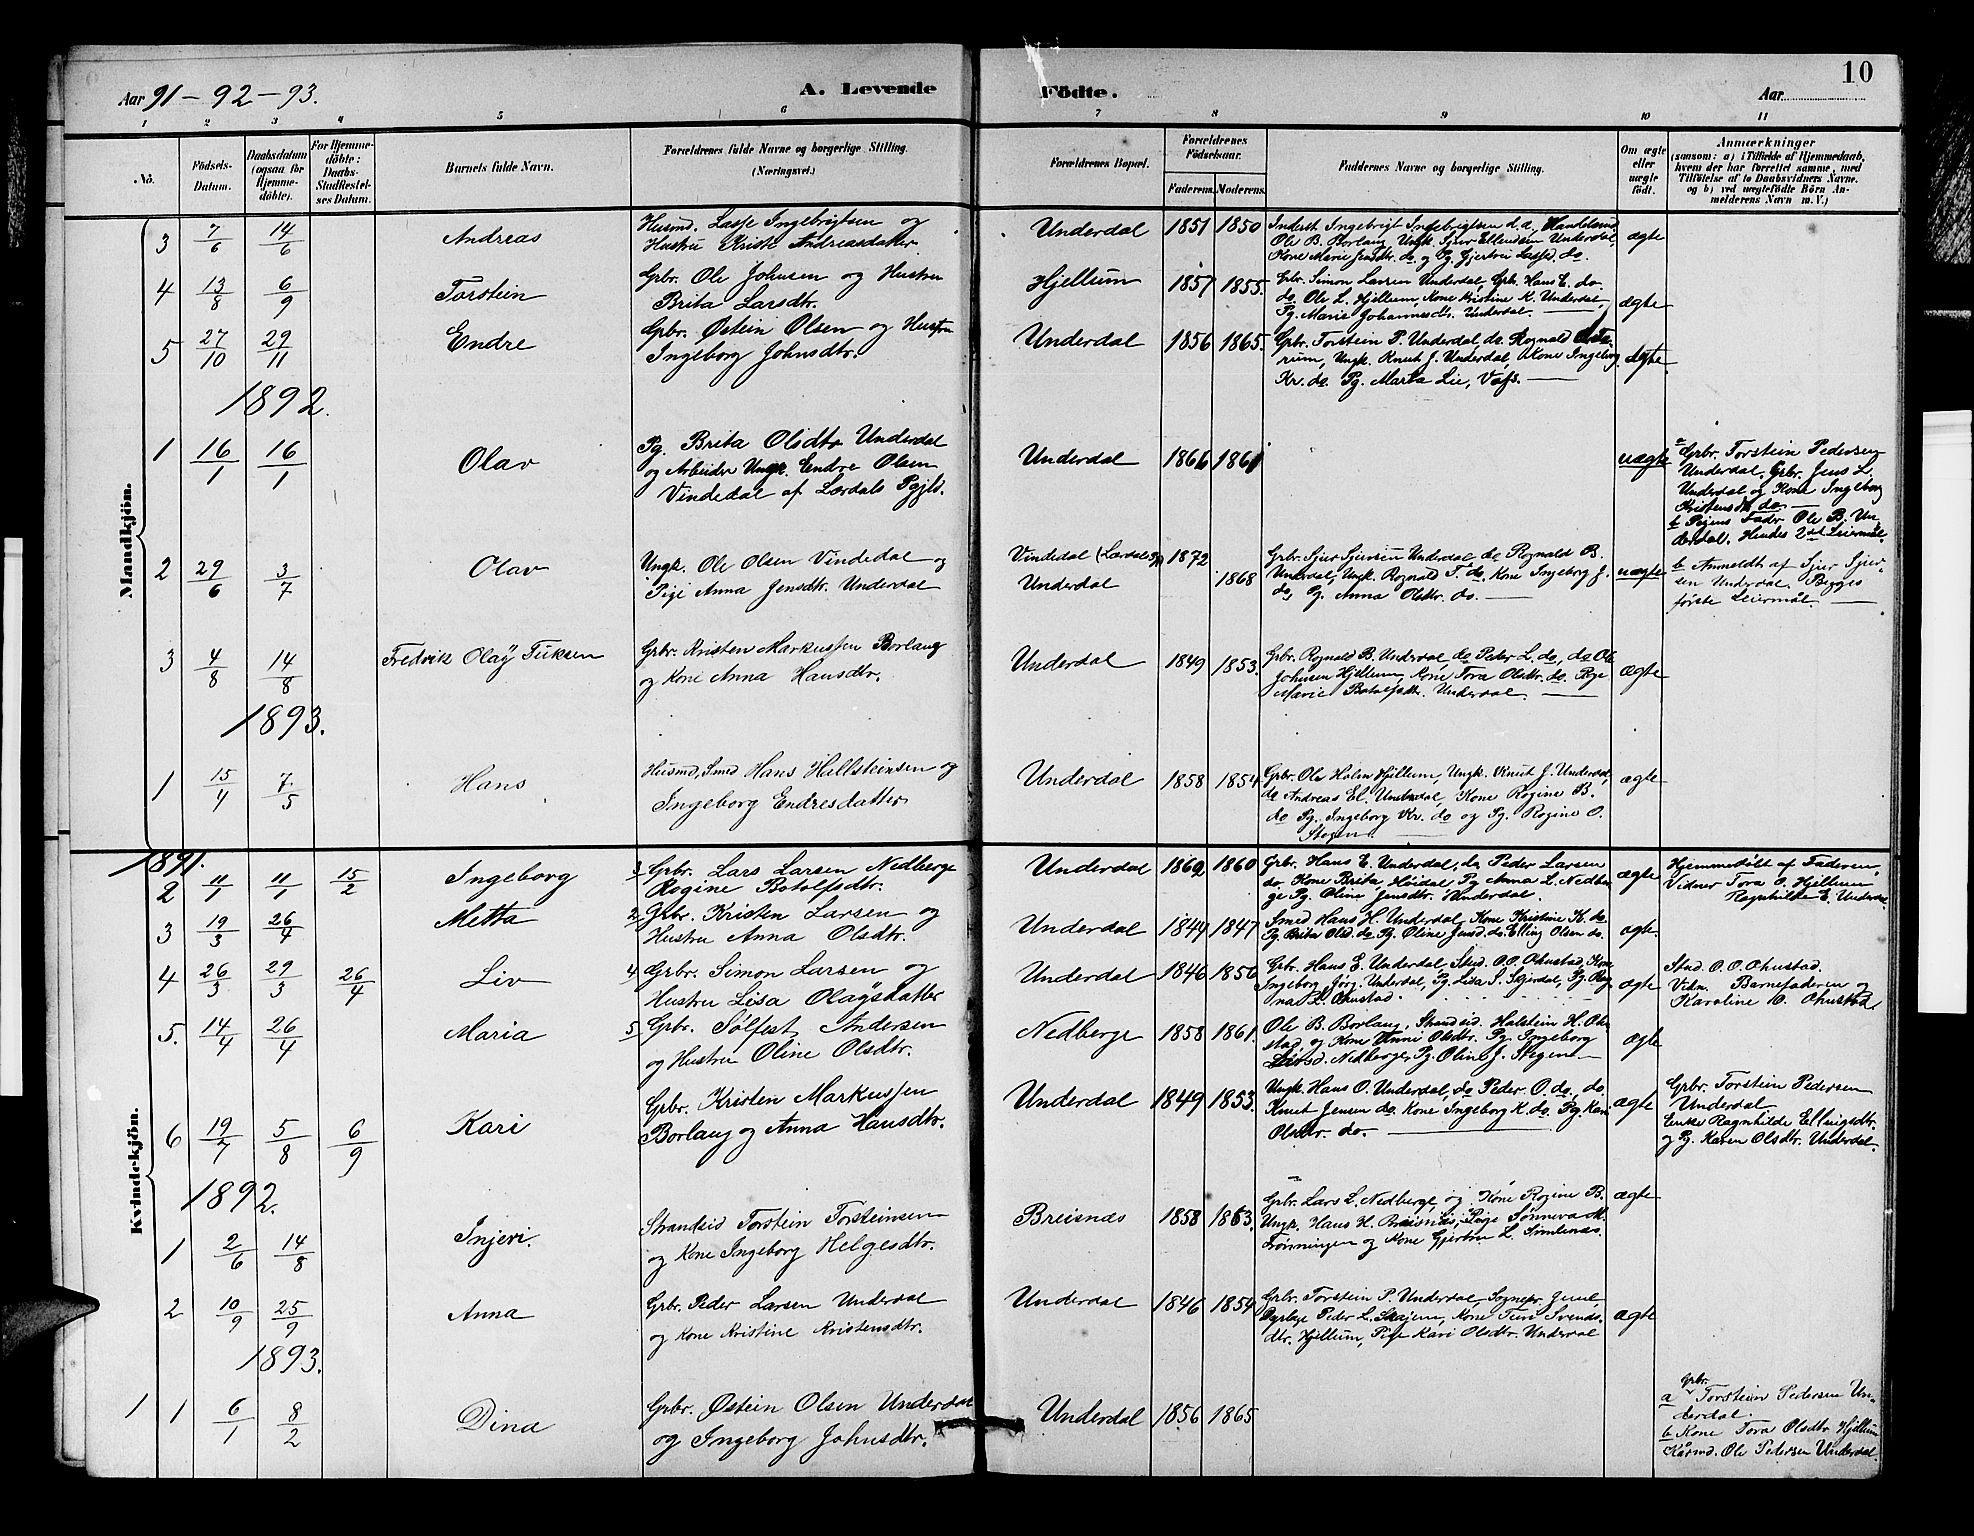 Aar 91 - 92 - 93.
A. Levende
Födte.
10
Aar
1 2 3 4 5 6 7 8 9 10 11
No.
Födsels-Datum.
Daabsdatum (ogsaa for Hjemme-döbte).
For Hjemme-döbte: Daabs-Stadfæstel-ses Datum.
Barnets fulde Navn.
Forældrenes fulde Navne og borgerlige Stilling. (Næringsvei.)
Forældrenes Bopæl.
Forældrenes Födselsaar.
Faderens. Moderens.
Faddernes Navne og borgerlige Stilling.
Om ægte eller uægte födt.
Anmærkninger
(saasom: a) i Tilfælde af Hjemmedaab, hvem der har forrettet samme, med Tilföielse af to Daabsvidners Navne, og b) ved uægtefödte Börn An-melderens Navn m. V.)
Mandkjön.
3 7/6 14/6 Andreas
Husmd. Lasse Ingebrigtsen og
Hustru Kristi Andreasdatter
Underdal 1851 1850
Inderst. Ingebrigt Ingebrigtsen d.a., Handelsmd
Ole B. Borlaug, Ungk. Sjur Ellendsen Underdal,
Kone Marie Jensdtr. do. og Pg. Gjertrui Lassed. do.
ægte
4 13/8 6/9 Torstein
Grbr. Ole Johnsen og Hustru
Brita Larsdtr.
Hjellum 1857 1855.
Grbr. Simon Larsen Underdal, Grb. Hans E. do.
do. Ole L. Hjellum, Kone Kristine K. Underdal,
Pg. Marie Johannesd. Underdal.
ægte
5 27/10 29/11 Endre
Grbr. Østein Olsen og Hustru
Ingeborg Johnsdtr.
Underdal 1856 1865.
Grbr. Torstein P. Underdal, do. Rognald
Ungk. Knut J. Underdal, Kone Ingeborg
Kr. do. Pg. Marta Lie, Vass.
ægte
1892.
1 16/1 16/1 Olav
Pg. Brita Olsdtr Underdal
og Arbeider Ungk. Endre Olsen
Vindedal af Lærdals Pgjld.
Underdal 1866 1861
uægte
a Grbr. Torstein Pedersen
Underdal, Grbr. Jens L.
Underdal og Kone Ingeborg
Kristensdtr do
b Pigens Fader Ole B. Un-
derdal. Hendes 2det Leiermål.
2 29/6 3/7 Olav
Ungk. Ole Olsen Vindedal og
Pige Anna Jensdtr. Underdal
Vindedal (Lærdals Pg) 1872
Underdal 1868
Grbr. Sjur Sjursen Underdal, do Rognald B.
Underdal, Ungk. Rognald T. do, Kone Ingeborg J.
do, Pg. Anna Olsdtr. do.
uægte
b Anmeldt af Sjur Sjur-
sen Underdal. Begges
første Leiermål.
3 4/8 14/8 Fredrik Olaf Tuksen
Grbr. Kristen Markussen Borlaug
og Kone Anna Hansdtr.
Underdal 1849 1853.
Grbr. Rognald B. Underdal, do Peder L. do, do Ole
Johnsen Hjellum, Kone Tora Olsdtr. do. Pige
Marie Botolfsdtr. Underdal.
ægte
1893.
1 15/4 7/5 Hans
Husmd, Smed Hans Hallsteinsen og
Ingeborg Endresdatter
Underdal 1858 1854
Grbr. Ole Holm Hjellum, Ungk. Knut J. Underdal,
do Andreas El. Underdal, Kone Rogine B.
do Pg. Ingeborg Kr. do og Pg. Rogine O.
Stegen.
ægte
Kvindekjön.
1891.
2 11/1 11/1 15/2 Ingeborg
3 Grbr. Lars Larsen Nedberge
Rogine Botolfsdtr.
Underdal 1860 1860
Grbr. Hans E. Underdal, do Peder Larsen
do. Kone Brita Høidal, Pg Anna L. Nedber
ge Pg. Oline Jensdtr. Underdal.
ægte
Hjemmedøbt af Faderen,
Vidner Tora O. Hjellum
Ragnhilde E. Underdal
3 19/3 26/4 Metta
2 Grbr. Kristen Larsen og
Hustru Anna Olsdtr.
Underdal 1849 1847
Smed Hans H. Underdal, Kone Kristine K. do
Pg. Brita Olsd. do Pg. Oline Jensd. do. Elling Olsen do.
ægte.
4 26/3 29/3 26/4 Liv
4 Grbr. Simon Larsen og
Hustru Lisa Olafsdatter
Underdal 1846 1856
Grbr. Hans E. Underdal, Skd. O. O. Ohnstad, Kone
Ingeborg Jørg. Underdal, Pg. Lisa S. Skjerdal, Pg. Rag
na L. Ohnstad.
ægte
Stud. O. O. Ohnstad.
Vidn. Barnefaderen og
Karoline O. Ohnstad
5. 14/4 26/4 Maria
5 Grbr. Sølfest Andersen
og Hustru Oline Olsdtr.
Nedberge 1858 1861.
Ole B. Borlaug, Strandsid. Halstein H. Ohn
stad, og Kone Anne Olsdtr. Pg. Ingeborg
Larsd. Nedberge, Pg. Olin J. Stegen
ægte
6 19/7 5/8 6/9 Kari
Grbr. Kristen Markussen
Borlaug og Anna Hansdtr.
Underdal 1849 1853.
Ungk. Hans O. Underdal, do Peder O. do, do
Knut Jensen do. Kone Ingeborg K. do. Pg. Kari
Olsdtr. do.
ægte
Grbr. Torstein Pedersen
Underdal
Enke Ragnhilde Ellingsdtr.
og Pg. Karen Olsdtr. Underdal.
1892.
1 2/6 14/8 Injeri.
Strandsid Torstein Torsteinsen
og Kone Ingeborg Helgesdtr.
Breisnæs 1858 1863.
Grbr. Lars L. Nedberge, og Kone Rogine B.
Ungk. Hans H. Breisnæs, Pige Sønneva M.
Frønningen og Kone Gjertru L. Simlenæs.
ægte
2 10/9 25/9 Anna
Grbr. Peder Larsen Underdal
og Kone Kristine Kristensdtr.
Underdal 1846 1854
Grbr. Torstein P. Underdal, Sognepr. Juul
Peder L. Skajem, Kone Turi Svends.
dtr. Hjellum, Pige Kari Olsdtr. Underdal
ægte
1893.
1 1 6/1 8/2 Dina
Grbr. Østein Olsen Underdal
og Ingeborg Johnsdtr.
Underdal 1856 1865
a Grbr. Torstein Pedersen Un-
derdal.
b Kone Tora Olsdtr Hjellum
Kårmd. Ole Pedersen Underdal.